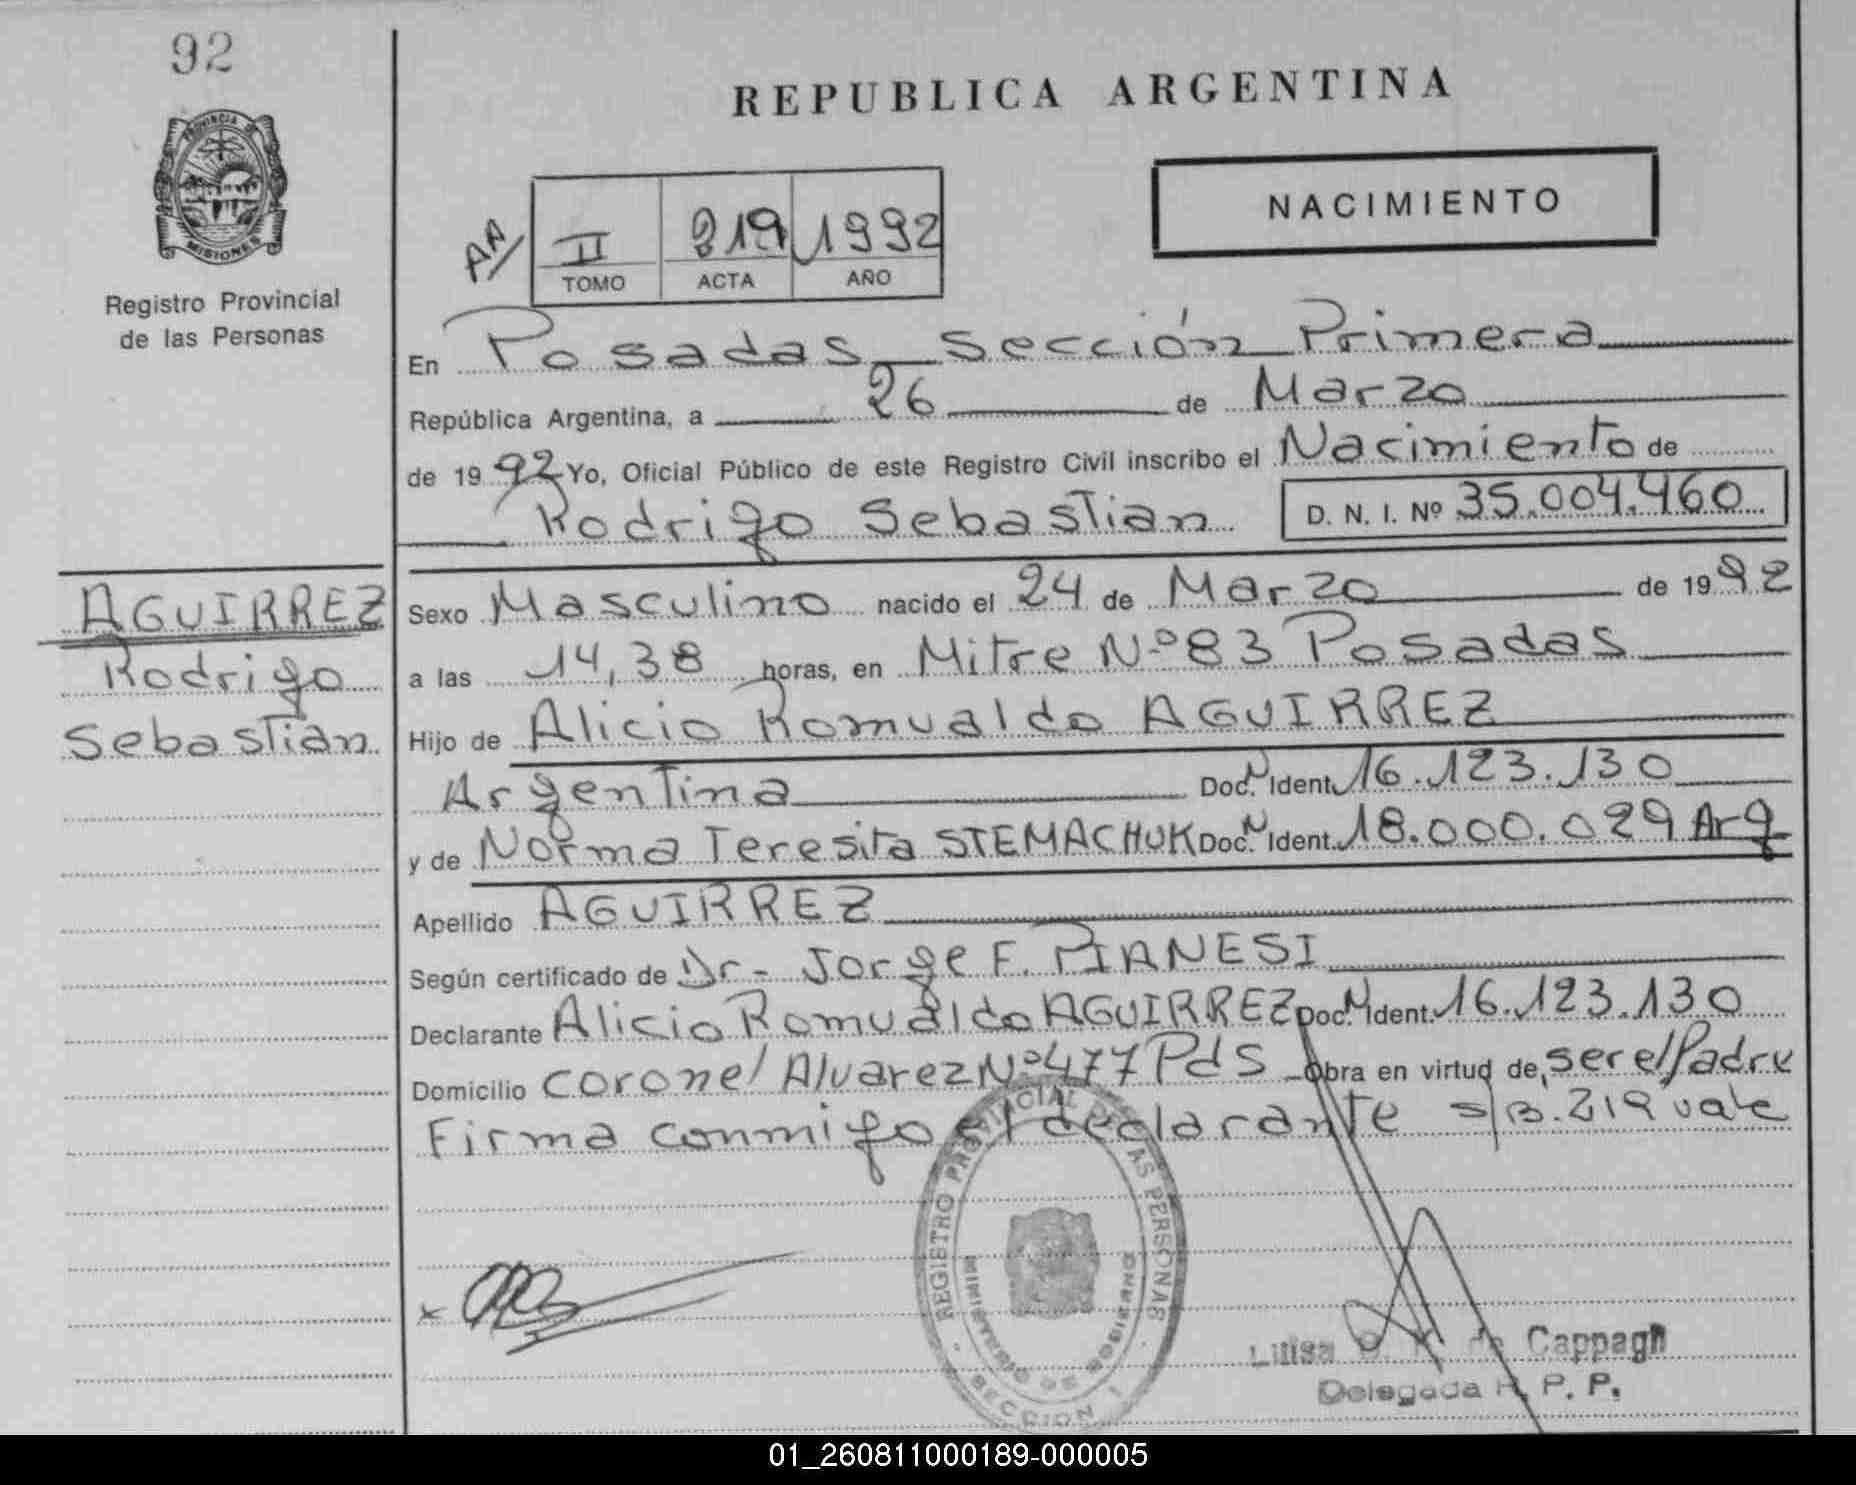 92
PROVINCIA DE
MISIONES
Registro Provincial
de las Personas
REPUBLICA ARGENTINA
NACIMIENTO
AA/
II 219 1992
TOMO ACTA AÑO
En Posadas Sección Primera
República Argentina, a 26 de Marzo
de 1992 Yo, Oficial Público de este Registro Civil inscribo el Nacimiento de
Rodrigo Sebastian D. N. I. Nº 35.004.460
AGUIRREZ
Rodrigo
Sebastian
Sexo Masculino nacido el 24 de Marzo de 1992
a las 14,38 horas, en Mitre Nº 83 Posadas
Hijo de Alicio Romualdo AGUIRREZ
Argentina Doc. N Ident. 16.123.130
y de Norma Teresita STEMACHUK Doc. N Ident. 18.000.029 Arg
Apellido AGUIRREZ
Según certificado de Dr- Jorge F. PIANESI
Declarante Alicio Romualdo AGUIRREZ Doc. N Ident. 16.123.130
Domicilio coronel Alvarez Nº 477 Pds Obra en virtud de, ser el Padre
Firma conmigo el declarante s/B. 219 vale
REGISTRO PROVINCIAL DE LAS PERSONAS
MINISTERIO DE GOBIERNO
SECCION
x
Luisa de Cappagli
Delegada R. P. P.
01_260811000189-000005